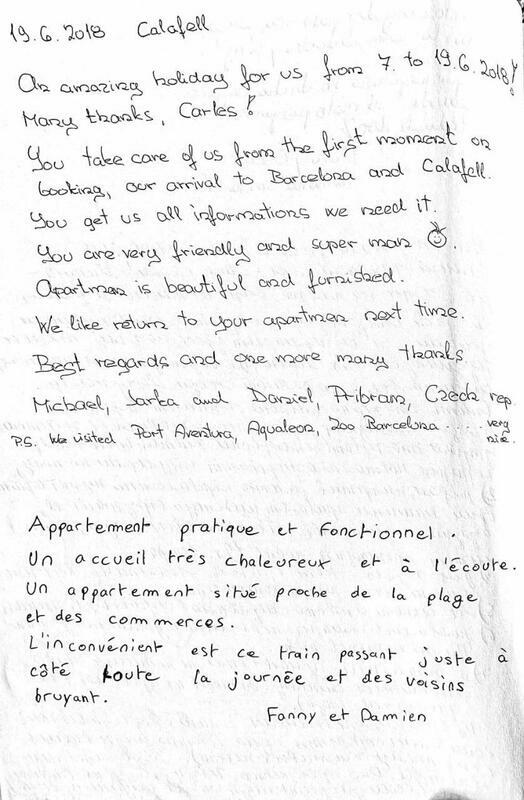 19.6.2018 Calafell
An amazing holiday for us from 7. to 19.6.2018!
Many thanks, Carles!
You take care of us from the first moment on
booking, our arrival to Barcelona and Calafell.
You get us all informations we need it.
You are very friendly and super man.
Apartmen is beautiful and furnished.
We like return to your apartmen next time.
Best regards and one more many thanks
Michael, Jarka and Daniel, Pribram, Czech rep.
P.S. We visited Port Aventura, Aqualeon, Zoo Barcelona ..... very nice.
Appartement pratique et fonctionnel.
Un accueil très chaleureux et à l'écoute.
Un appartement situé proche de la plage
et des commerces.
L'inconvénient est ce train passant juste à
côté toute la journée et des voisins
bruyant.
Fanny et Damien